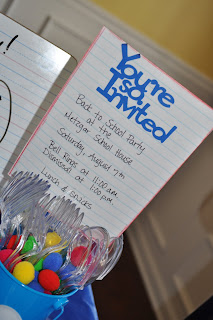 y!
You're
so
Invited
Back to School Party
at the
Metzgar School House
Saturday, August 7th
Bell Rings at 11:00 am
Dismissed at 1:00 pm
Lunch & Snacks